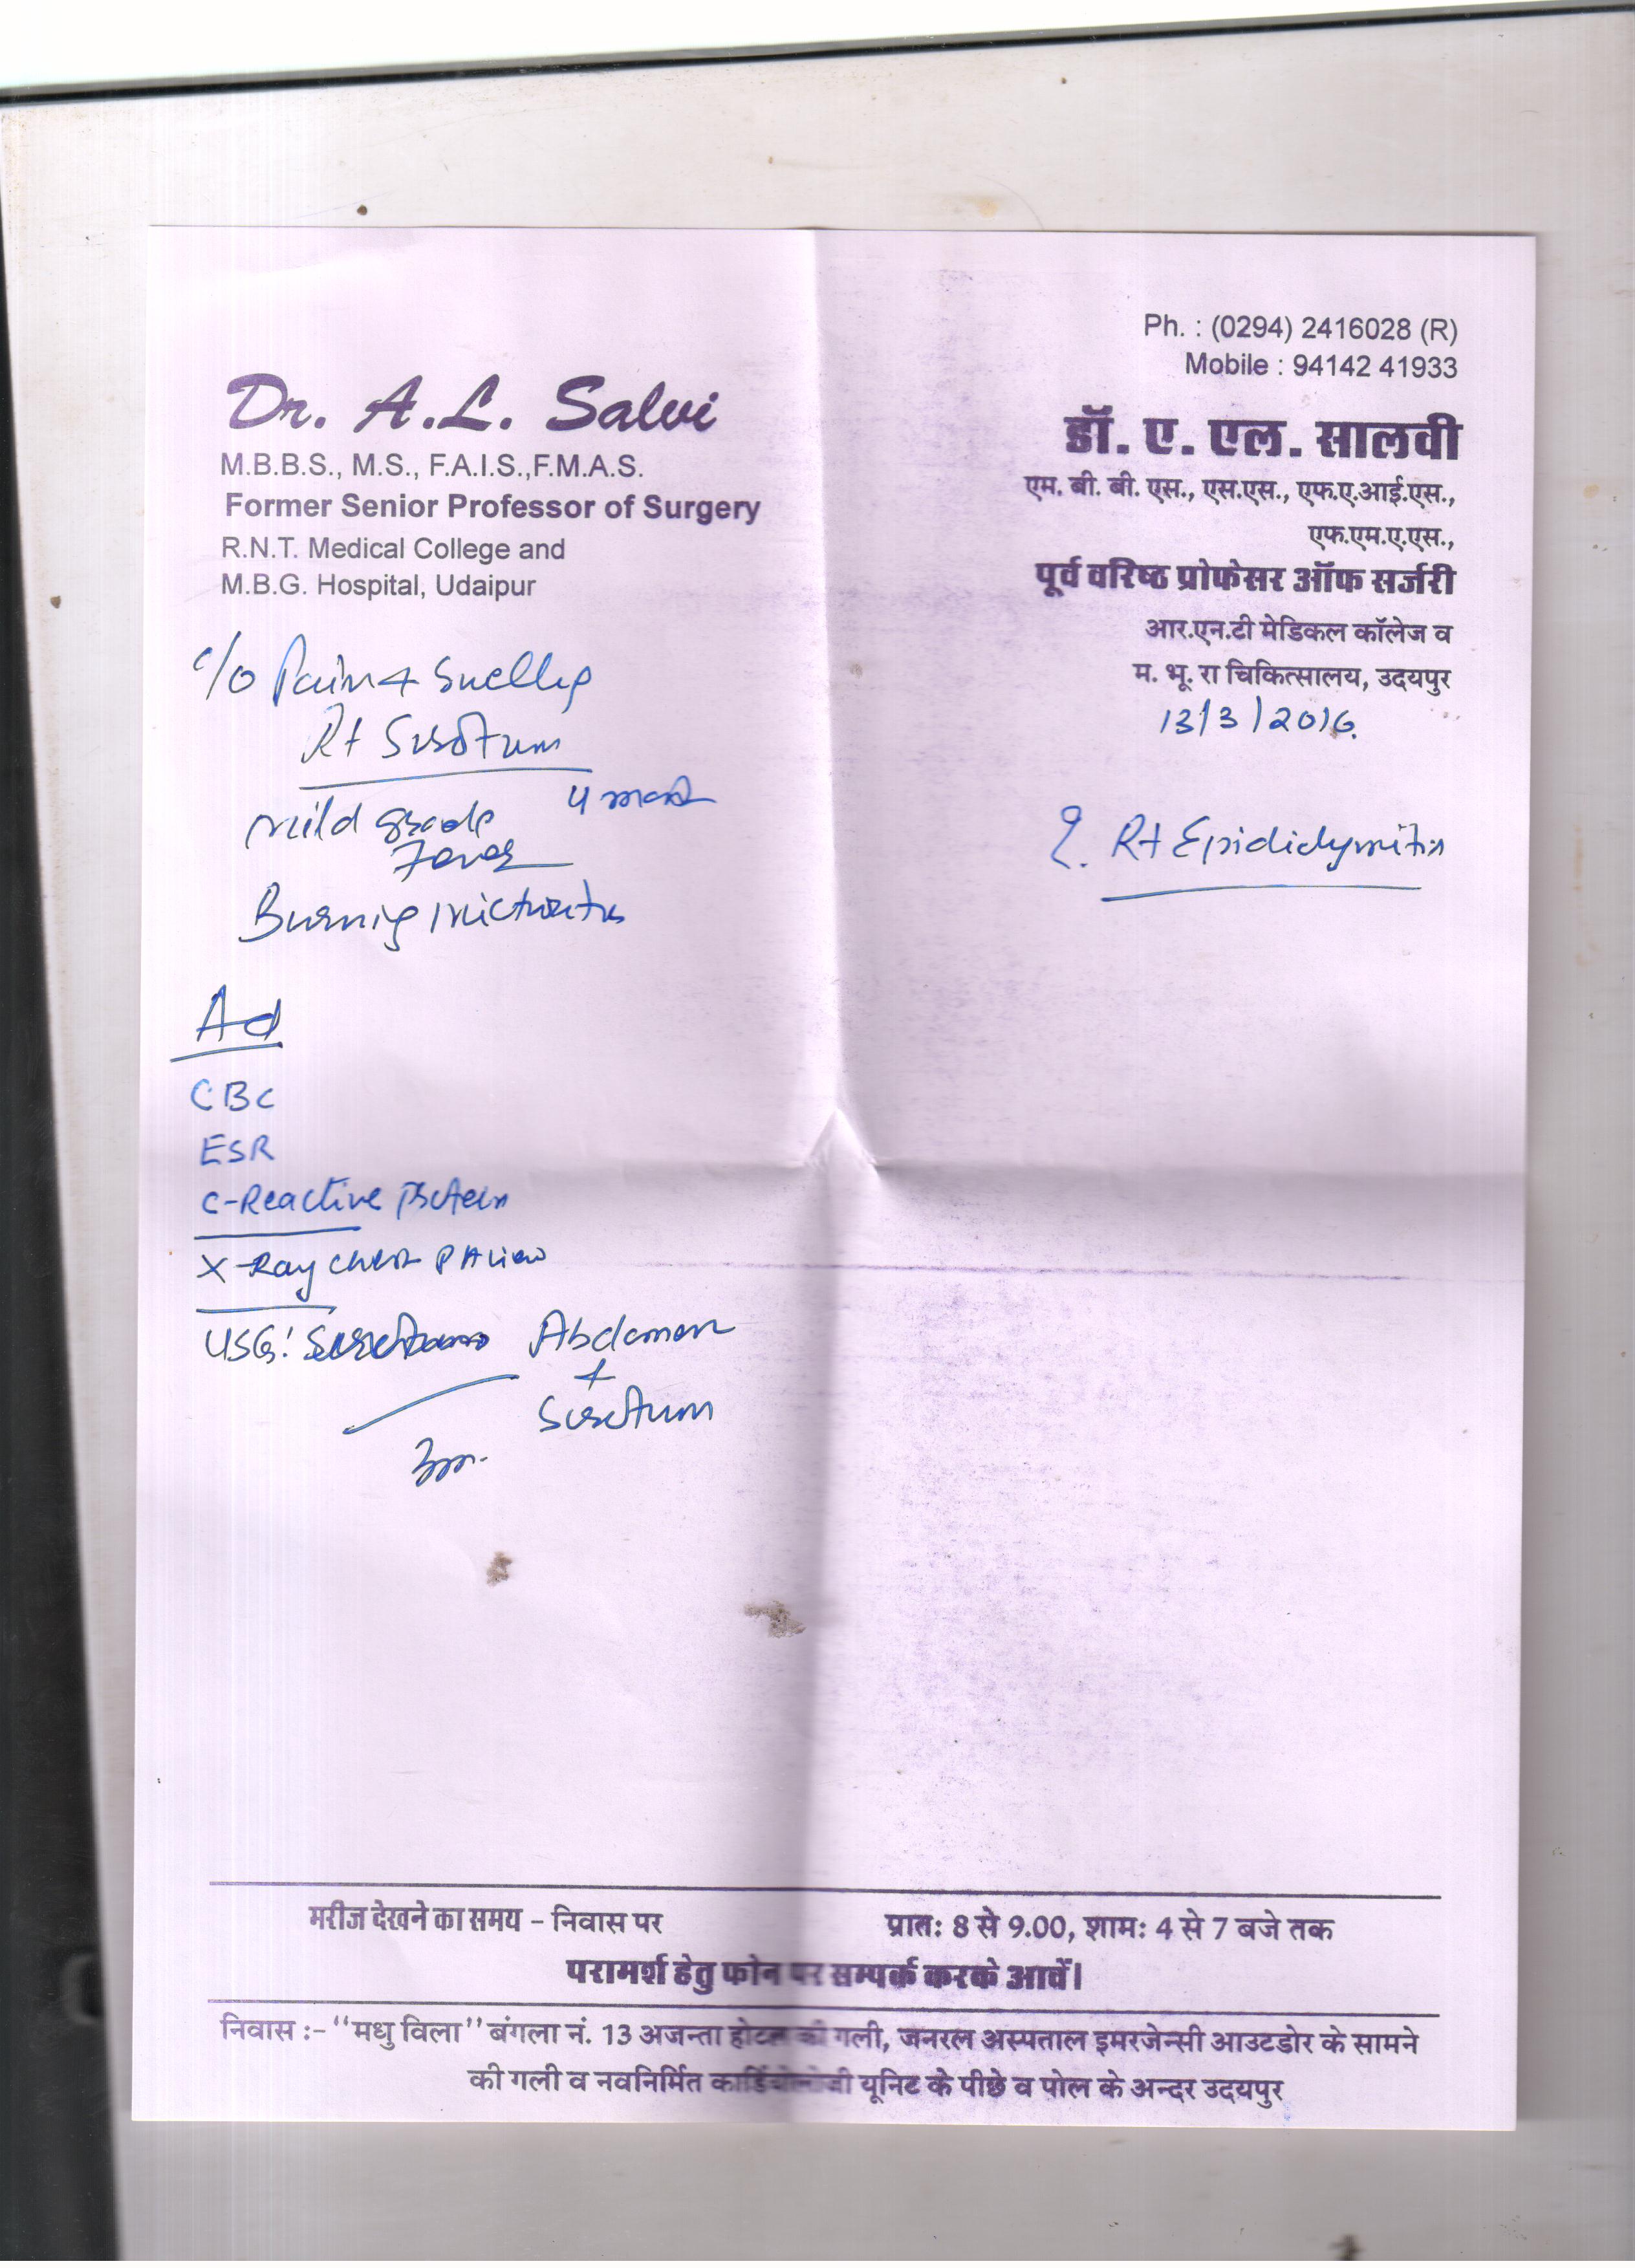 Ph. : (0294) 2416028 (R)
Mobile : 94142 41933
Dr. A.L. Salvi
M.B.B.S., M.S., F.A.I.S.,F.M.A.S.
Former Senior Professor of Surgery
R.N.T. Medical College and
M.B.G. Hospital, Udaipur
डॉ. ए. एल. सालवी
एम. बी. बी. एस., एस.एस., एफ.ए.आई.एस.,
एफ.एम.ए.एस.,
पूर्व वरिष्ठ प्रोफेसर ऑफ सर्जरी
आर.एन.टी मेडिकल कॉलेज व
म. भू. रा चिकित्सालय, उदयपुर
13/3/2016.
c/o Pain + Swelling
Rt Scrotum
4
mild grade
Fever
Burning micturition
Rt Epididymitis
Ad
CBC
ESR
C-Reactive Protein
X-Ray chest PA view
USG: Abdomen
+
Scrotum
मरीज देखने का समय - निवास पर प्रातः 8 से 9.00, शामः 4 से 7 बजे तक
परामर्श हेतु फोन पर सम्पर्क करके आवें।
निवास :- "मधु विला" बंगला नं. 13 अजन्ता होटल की गली, जनरल अस्पताल इमरजेन्सी आउटडोर के सामने
की गली व नवनिर्मित कार्डियोलोजी यूनिट के पीछे व पोल के अन्दर उदयपुर